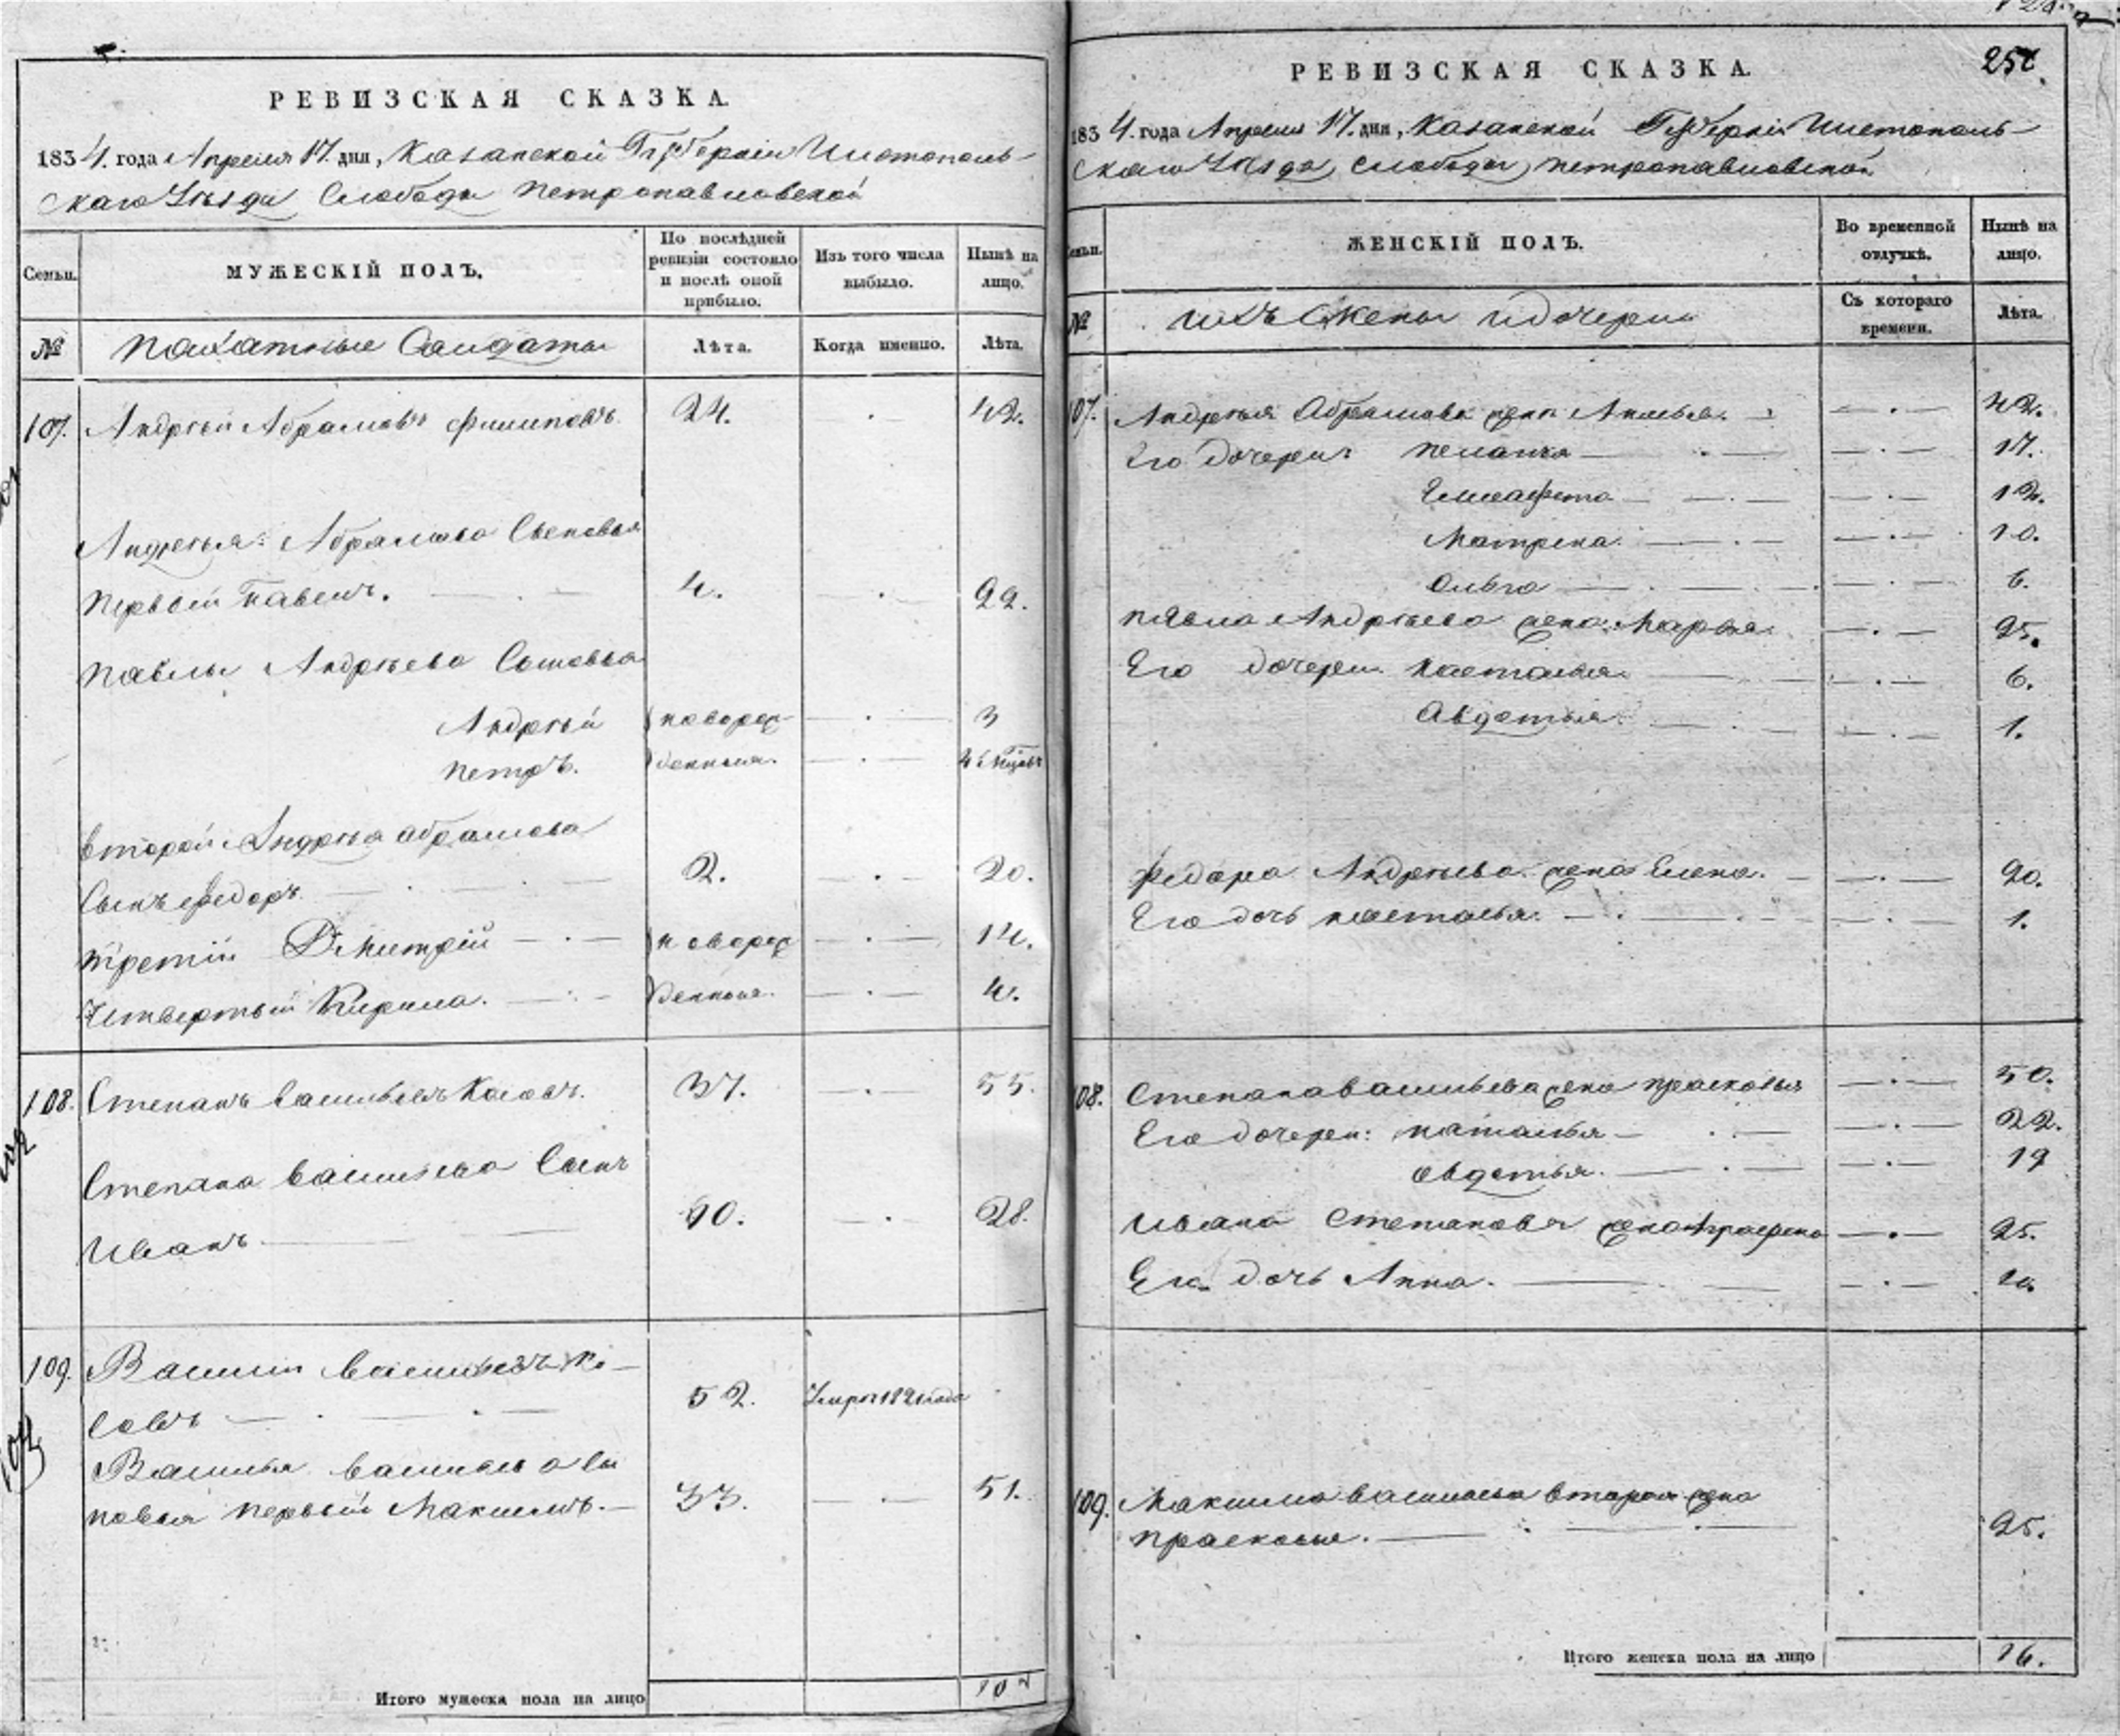 РЕВИЗСКАЯ СКАЗКА.
1834. года Апреля 17. дня, Казанской Губернiи Чистополь-
скаго Уѣзда Слободы Петропавловской
Семьи.
МУЖЕСКIЙ ПОЛЪ.
По послѣдней ревизiи состояло и послѣ оной прибыло.
Изъ того числа выбыло.
Нынѣ на лицо.
№
Пахатные Солдаты
Лѣта.
Когда именно.
Лѣта.
107. Андрей Абрамовъ Филиповъ. 24. 42.
Андрея Абрамова Сыновья
первый Павелъ. 4. 22.
Павла Андреева Сыновья
Андрей новорож- 3
Петръ. денныя.
второй Андрея Абрамова
Сынъ Федоръ 2. 20.
третiй Дмитрiй новорож 14.
Четвертый Кирила. денныя. 4.
108. Степанъ Васильевъ Косовъ. 37. 55.
Степана Васильева Сынъ
Иванъ 10. 28.
109. Василiй Васильевъ Ко-
совъ 52. Умре 1821 года
Василья Васильева Сы
новья первый Максимъ. 33. 51.
Итого мужеска пола на лицо 10
251.
РЕВИЗСКАЯ СКАЗКА.
1834. года Апреля 17. дня, Казанской Губернiи Чистополь-
скаго Уѣзда Слободы Петропавловской
Семьи.
ЖЕНСКIЙ ПОЛЪ.
Во временной отлучкѣ.
Нынѣ на лицо.
№
Ихъ Жены и дочери
Съ котораго времени.
Лѣта.
107. Андрея Абрамова жена 42.
Его дочери: Пелагея 17.
Елисафета 12.
Матрена 10.
Ольга 6.
Павла Андреева жена Марья 25.
Его дочери Настасья 6.
Авдотья 1.
Федора Андреева жена Елена. 20.
Его дочь Настасья. 1.
108. Степана Васильева жена Прасковья 50.
Его дочери: Наталья 22.
Овдотья. 19
Ивана Степановъ жена Аграфена 25.
Его дочь Анна.
109. Максима Васильева вторая жена
Прасковья. 25.
Итого женска пола на лицо 16.